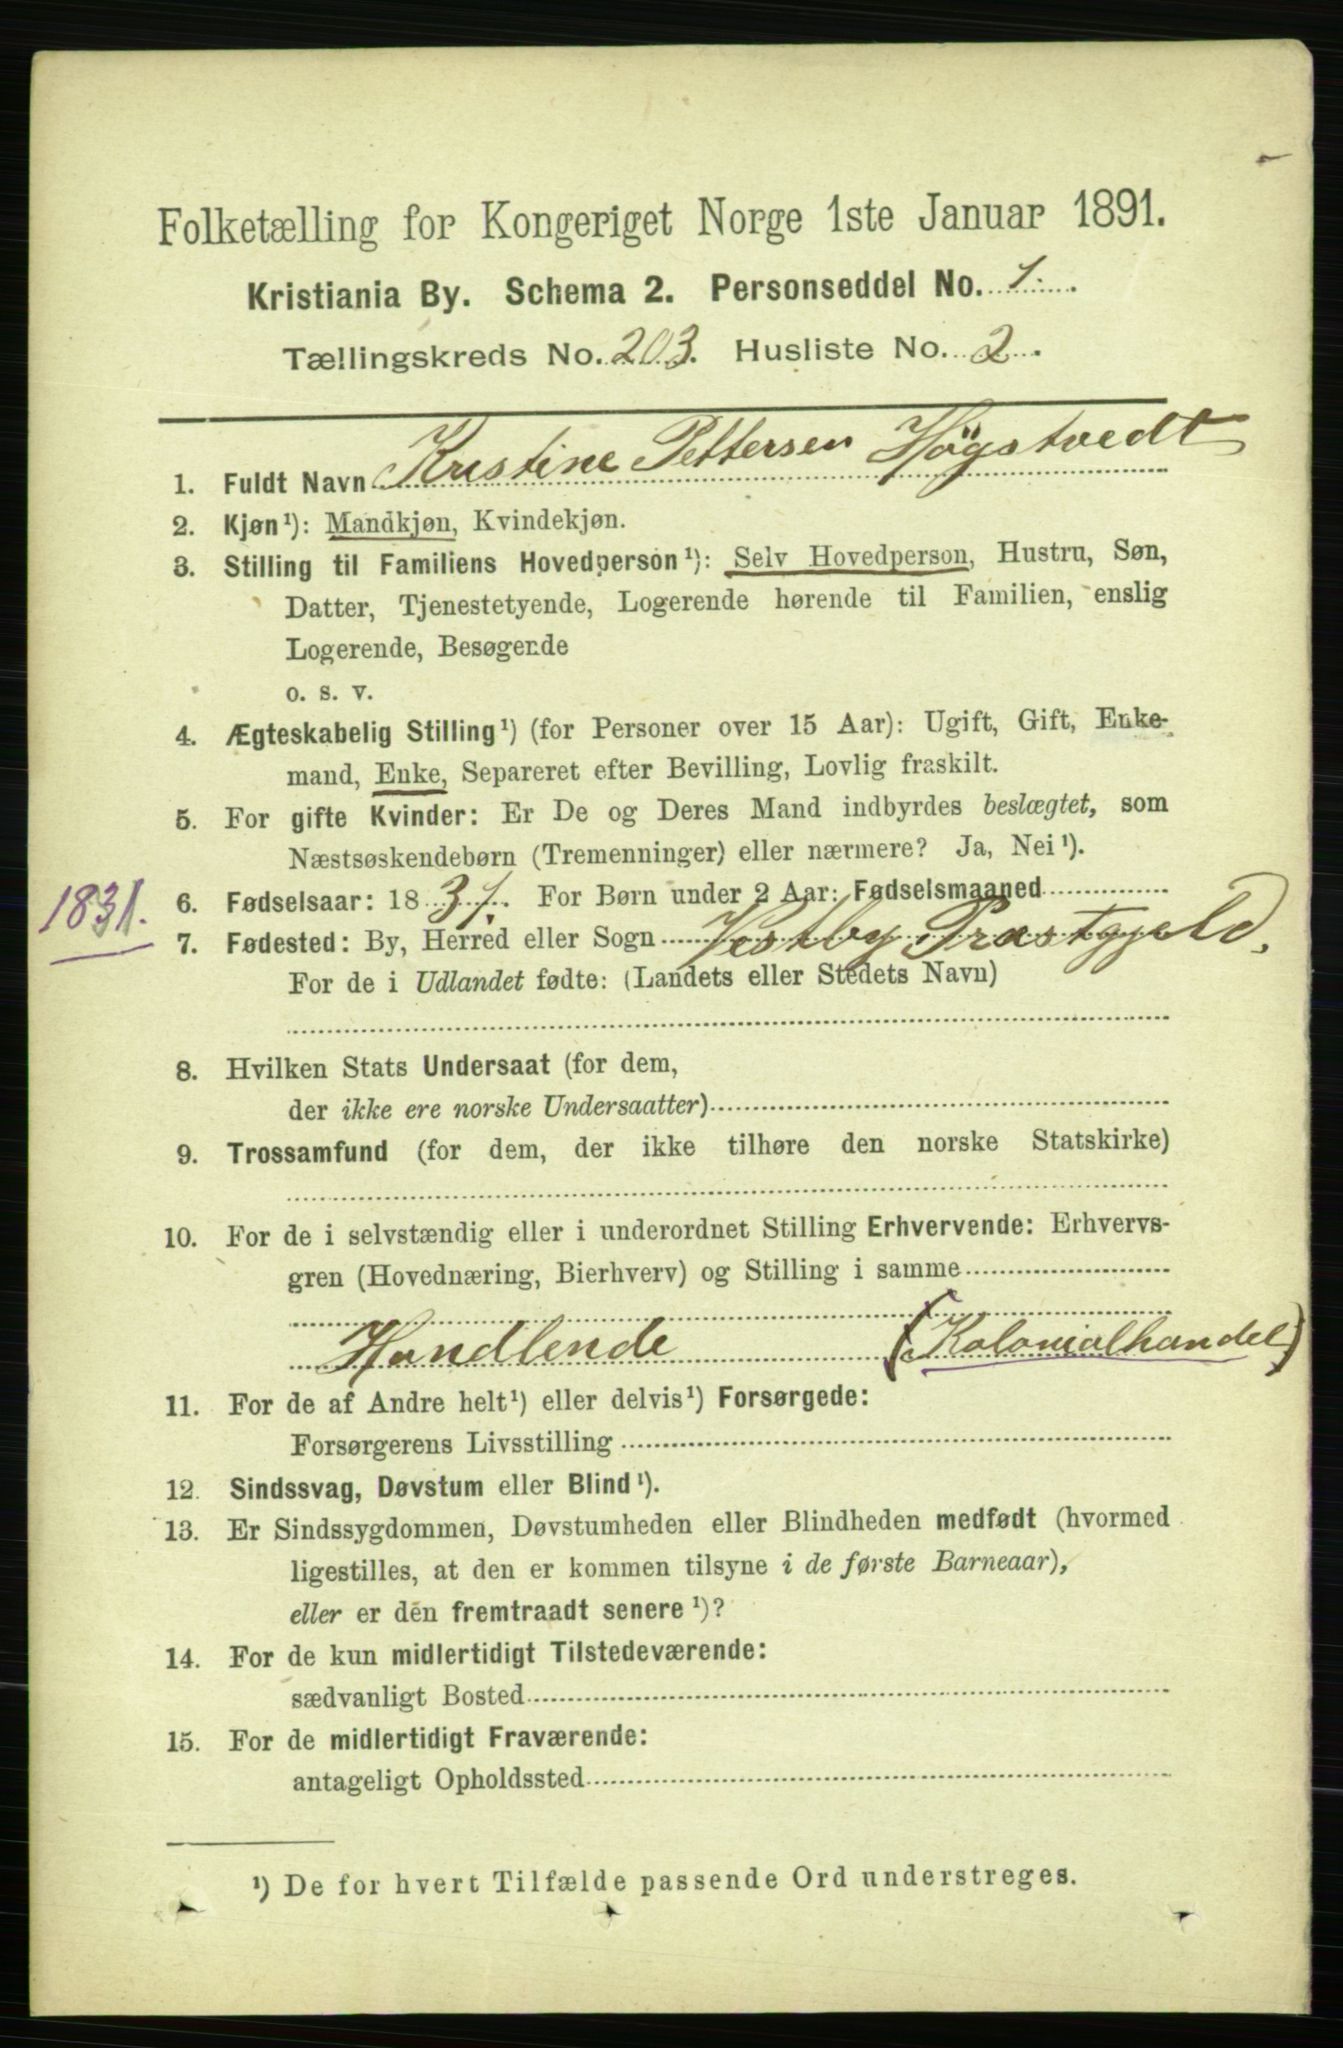 Folketælling for Kongeriget Norge 1ste Januar 1891.
Kristiania By. Schema 2. Personseddel No. 1.
Tællingskreds No. 203. Husliste No. 2.
1. Fuldt Navn Kristine Pettersen Högstvedt
2. Kjøn¹): Mandkjøn, Kvindekjøn.
3. Stilling til Familiens Hovedperson¹): Selv Hovedperson, Hustru, Søn,
Datter, Tjenestetyende, Logerende hørende til Familien, enslig
Logerende, Besøgende
o. s. v.
4. Ægteskabelig Stilling¹) (for Personer over 15 Aar): Ugift, Gift, Enke-
mand, Enke, Separeret efter Bevilling, Lovlig fraskilt.
5. For gifte Kvinder: Er De og Deres Mand indbyrdes beslægtet, som
Næstsøskendebørn (Tremenninger) eller nærmere? Ja, Nei¹).
1831. 6. Fødselsaar: 1831. For Børn under 2 Aar: Fødselsmaaned
7. Fødested: By, Herred eller Sogn Vestby Prastgjeld.
For de i Udlandet fødte: (Landets eller Stedets Navn)
8. Hvilken Stats Undersaat (for dem,
der ikke ere norske Undersaatter)
9. Trossamfund (for dem, der ikke tilhøre den norske Statskirke)
10. For de i selvstændig eller i underordnet Stilling Erhvervende: Erhvervs-
gren (Hovednæring, Bierhverv) og Stilling i samme
Handlende (Kolonialhandel)
11. For de af Andre helt¹) eller delvis¹) Forsørgede:
Forsørgerens Livsstilling
12. Sindssvag, Døvstum eller Blind¹).
13. Er Sindssygdommen, Døvstumheden eller Blindheden medfødt (hvormed
ligestilles, at den er kommen tilsyne i de første Barneaar),
eller er den fremtraadt senere¹)?
14. For de kun midlertidigt Tilstedeværende:
sædvanligt Bosted
15. For de midlertidigt Fraværende:
antageligt Opholdssted
¹) De for hvert Tilfælde passende Ord understreges.